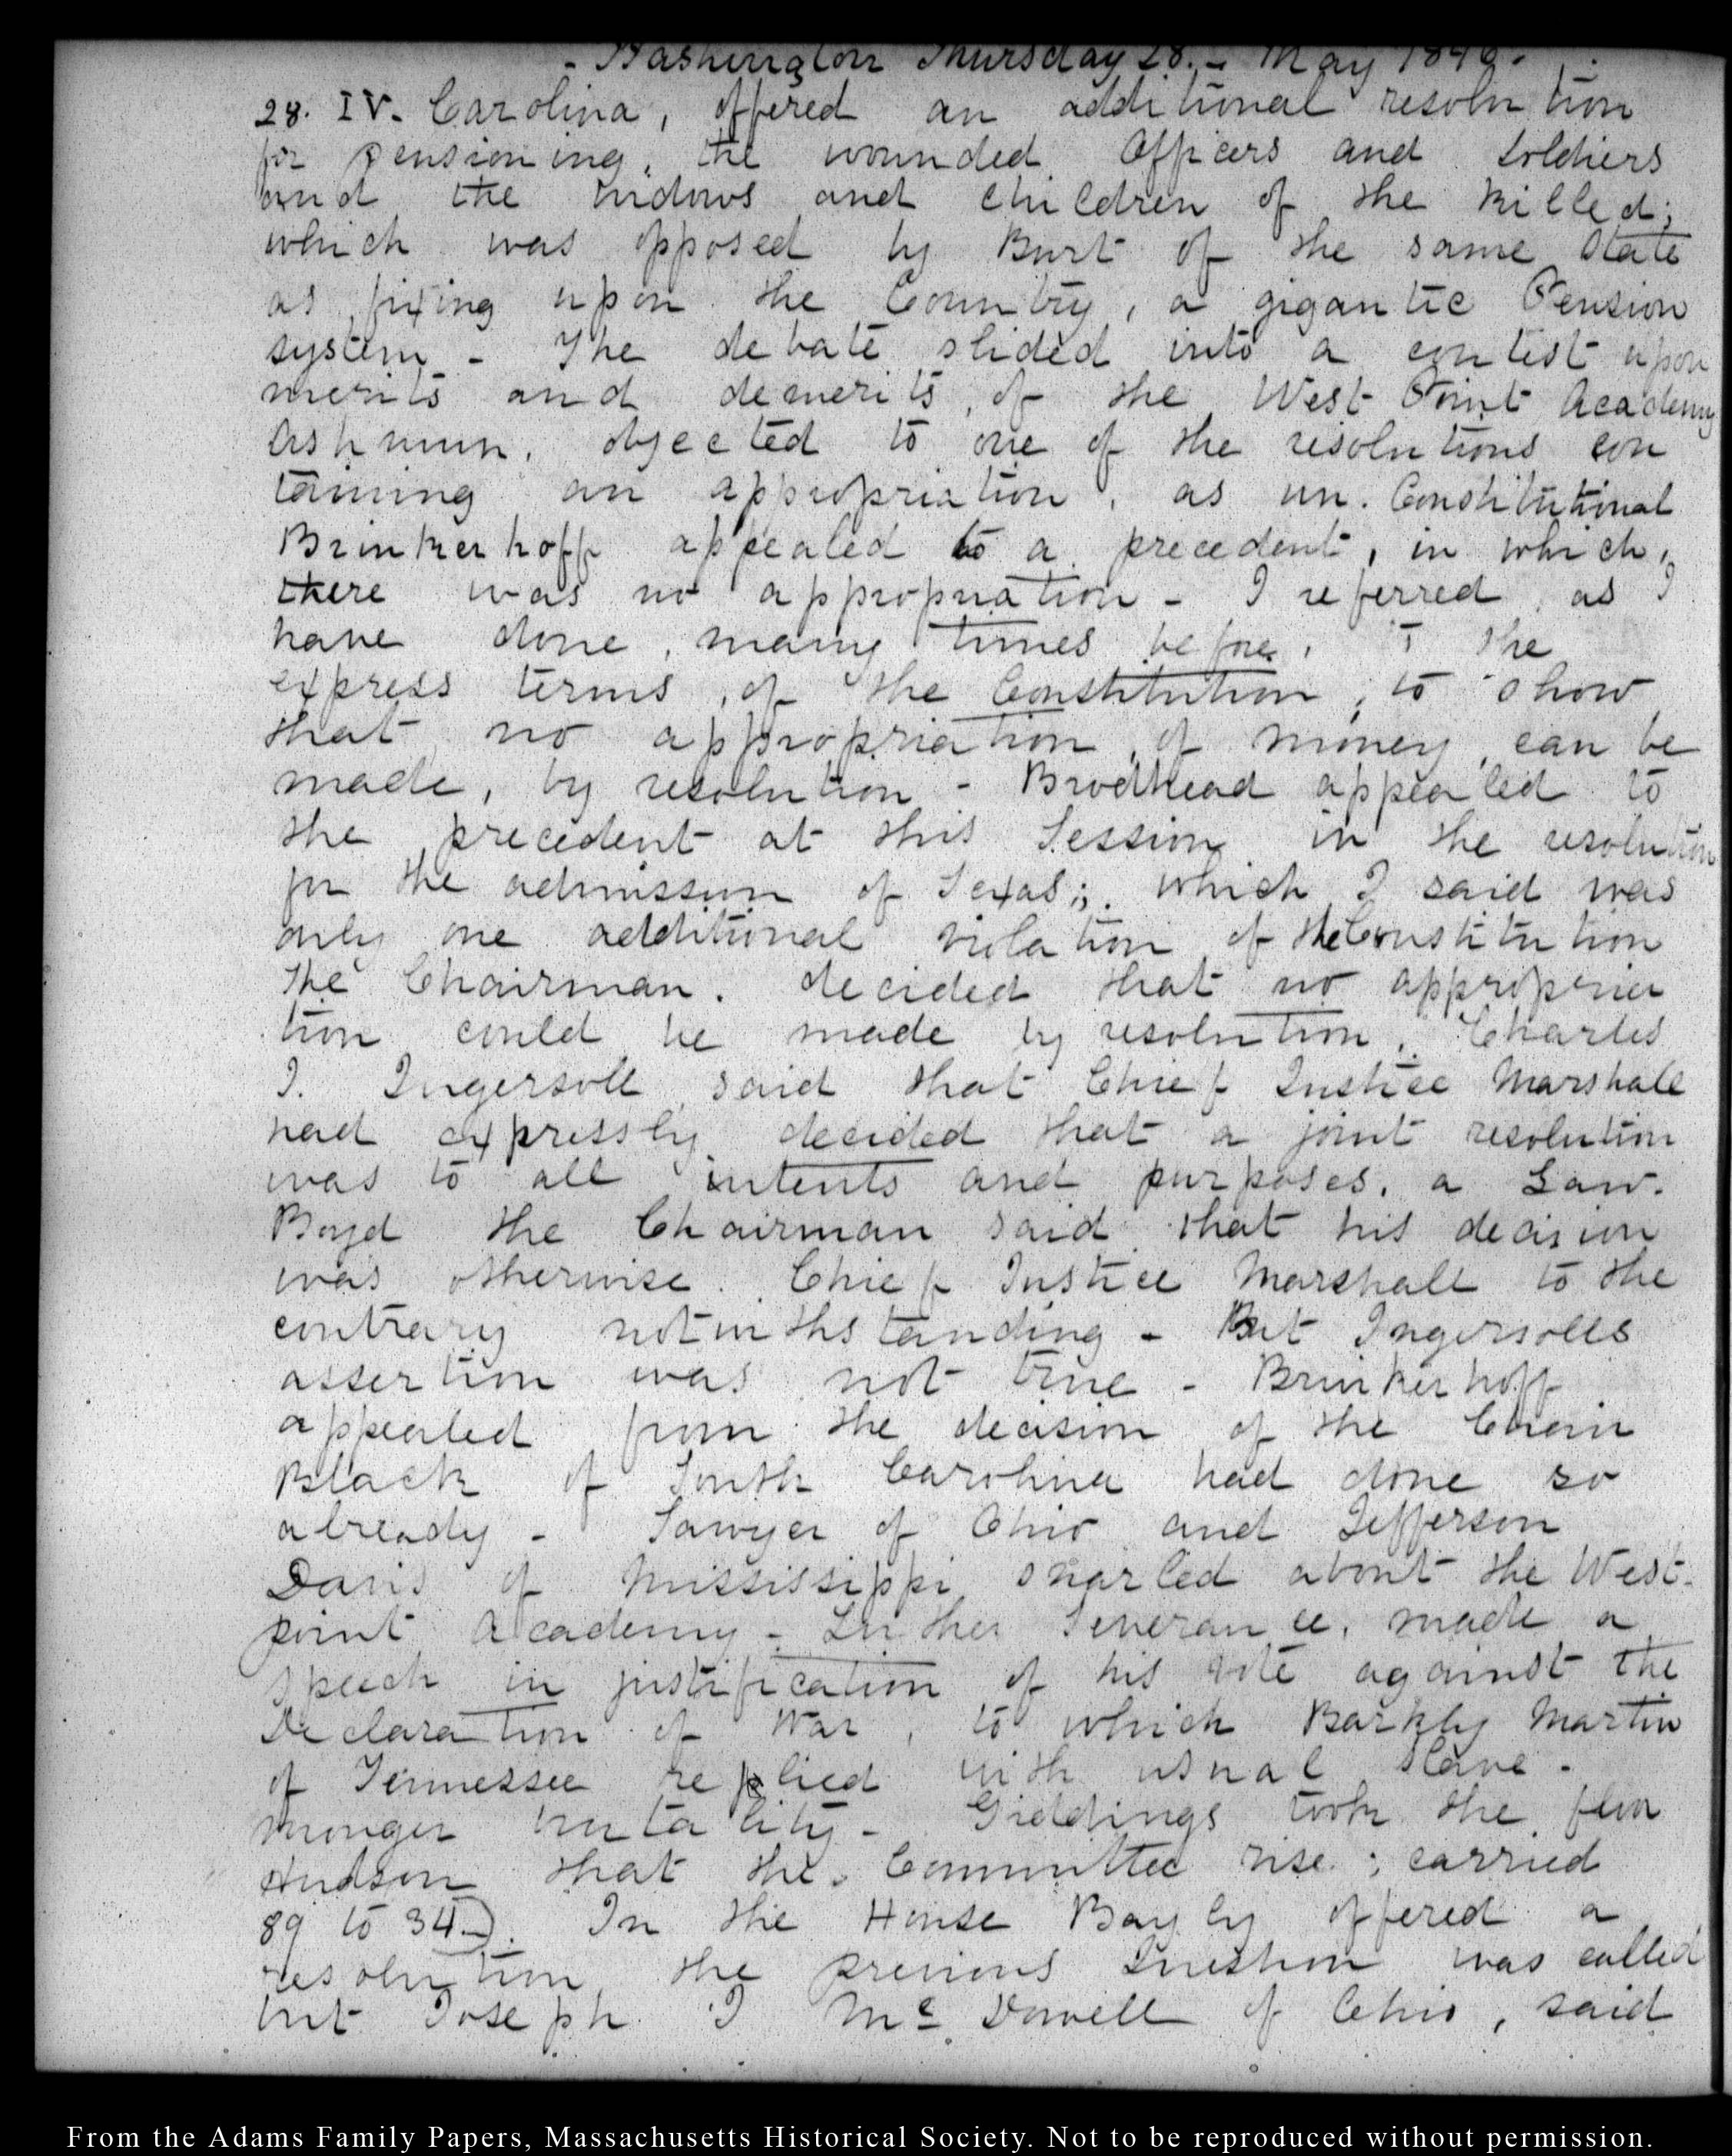 - Washington Thursday 28. - May 1846.
28. IV. Carolina, offered an additional resolution
for pensioning, the wounded Officers and soldiers
and the widows and children of the killed;
which was opposed by Burt of the same State
as fixing upon the Country, a gigantic Pension
system - The debate slided into a contest upon
merits and demerits, of the West Point Academy
Ashmun, objected to one of the resolutions con
taining an appropriation, as un. Constitutional
Brinkerhoff appealed to a precedent, in which,
there was no appropriation - I referred, as I
have done, many times before, to the
express terms, of the Constitution, to show
that no appropriation, of money, can be
made, by resolution - Brodhead appealed to
the precedent at this Session in the resolution
for the admission of Texas; which I said was
only one additional violation of the Constitution
The Chairman. decided that no appropria
tion could be made by resolution. Charles
J. Ingersoll said that Chief Justice Marshall
had expressly decided that a joint resolution
was to all intents and purposes, a Law.
Boyd the Chairman said that his decision
was otherwise. Chief Justice Marshall to the
contrary notwithstanding - But Ingersolls
assertion was not true - Brinkerhoff
appealed from the decision of the Chair
Black of South Carolina had done so
already - Sawyer of Ohio and Jefferson
Davis of Mississippi snarled about the West-
point Academy - Luther Severance, made a
speech in justification of his vote against the
Declaration of War, to which Barkly Martin
of Tennessee replied with usual slave-
monger brutality - Giddings took the floor
Hudson that the Committee rise; carried
89 to 34.) In the House Bayly offered a
resolution the previous Question was called
but Joseph J McDowell of Ohio, said
From the Adams Family Papers, Massachusetts Historical Society. Not to be reproduced without permission.